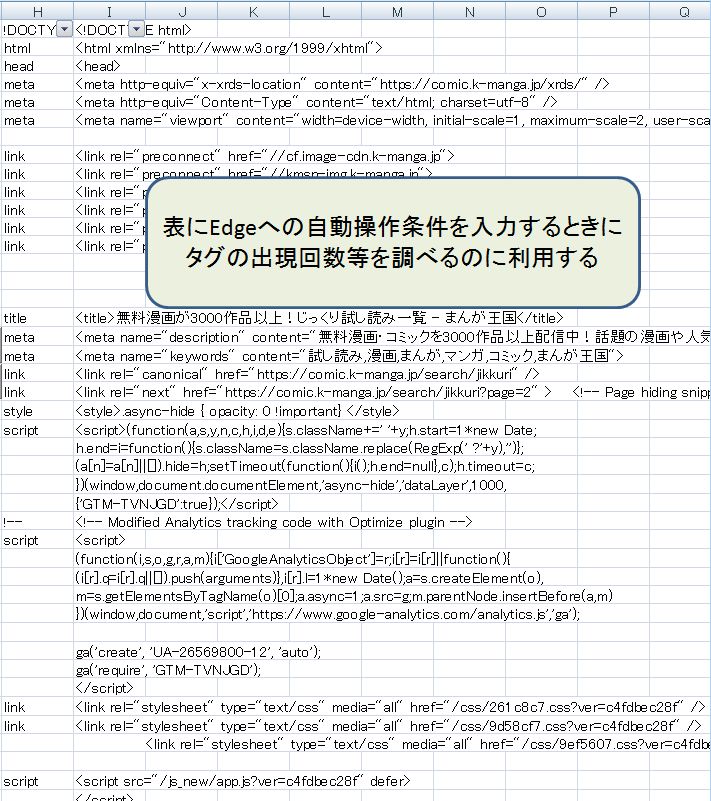 H I J K L M N O P Q
!DOCTY <!DOCT E html>
html <html xmlns="http://www.w3.org/1999/xhtml">
head <head>
meta <meta http-equiv="x-xrds-location" content="https://comic.k-manga.jp/xrds/" />
meta <meta http-equiv="Content-Type" content="text/html; charset=utf-8" />
meta <meta name="viewport" content="width=device-width, initial-scale=1, maximum-scale=2, user-sca
link <link rel="preconnect" href="//cf.image-cdn.k-manga.jp">
link <link rel="preconnect" href="//kmsn-img.k-manga.jp">
link <link rel="p
link <link rel="p
link <link rel="p
link <link rel="p
表にEdgeへの自動操作条件を入力するときに
タグの出現回数等を調べるのに利用する
title <title>無料漫画が3000作品以上！じっくり試し読み一覧 - まんが王国</title>
meta <meta name="description" content="無料漫画・コミックを3000作品以上配信中！話題の漫画や人気
meta <meta name="keywords" content="試し読み,漫画,まんが,マンガ,コミック,まんが王国">
link <link rel="canonical" href="https://comic.k-manga.jp/search/jikkuri" />
link <link rel="next" href="https://comic.k-manga.jp/search/jikkuri?page=2" > <!-- Page hiding snipp
style <style>.async-hide { opacity: 0 !important} </style>
script <script>(function(a,s,y,n,c,h,i,d,e){s.className+=' '+y;h.start=1*new Date;
h.end=i=function(){s.className=s.className.replace(RegExp(' ?'+y),'')};
(a[n]=a[n]||[]).hide=h;setTimeout(function(){i();h.end=null},c);h.timeout=c;
})(window,document.documentElement,'async-hide','dataLayer',1000,
{'GTM-TVNJGD':true});</script>
!-- <!-- Modified Analytics tracking code with Optimize plugin -->
script <script>
(function(i,s,o,g,r,a,m){i['GoogleAnalyticsObject']=r;i[r]=i[r]||function(){
(i[r].q=i[r].q||[]).push(arguments)},i[r].l=1*new Date();a=s.createElement(o),
m=s.getElementsByTagName(o)[0];a.async=1;a.src=g;m.parentNode.insertBefore(a,m)
})(window,document,'script','https://www.google-analytics.com/analytics.js','ga');
ga('create', 'UA-26569800-12', 'auto');
ga('require', 'GTM-TVNJGD');
</script>
link <link rel="stylesheet" type="text/css" media="all" href="/css/261c8c7.css?ver=c4fdbec28f" />
link <link rel="stylesheet" type="text/css" media="all" href="/css/9d58cf7.css?ver=c4fdbec28f" />
<link rel="stylesheet" type="text/css" media="all" href="/css/9ef5607.css?ver=c4fdbe
script <script src="/js_new/app.js?ver=c4fdbec28f" defer>
</script>